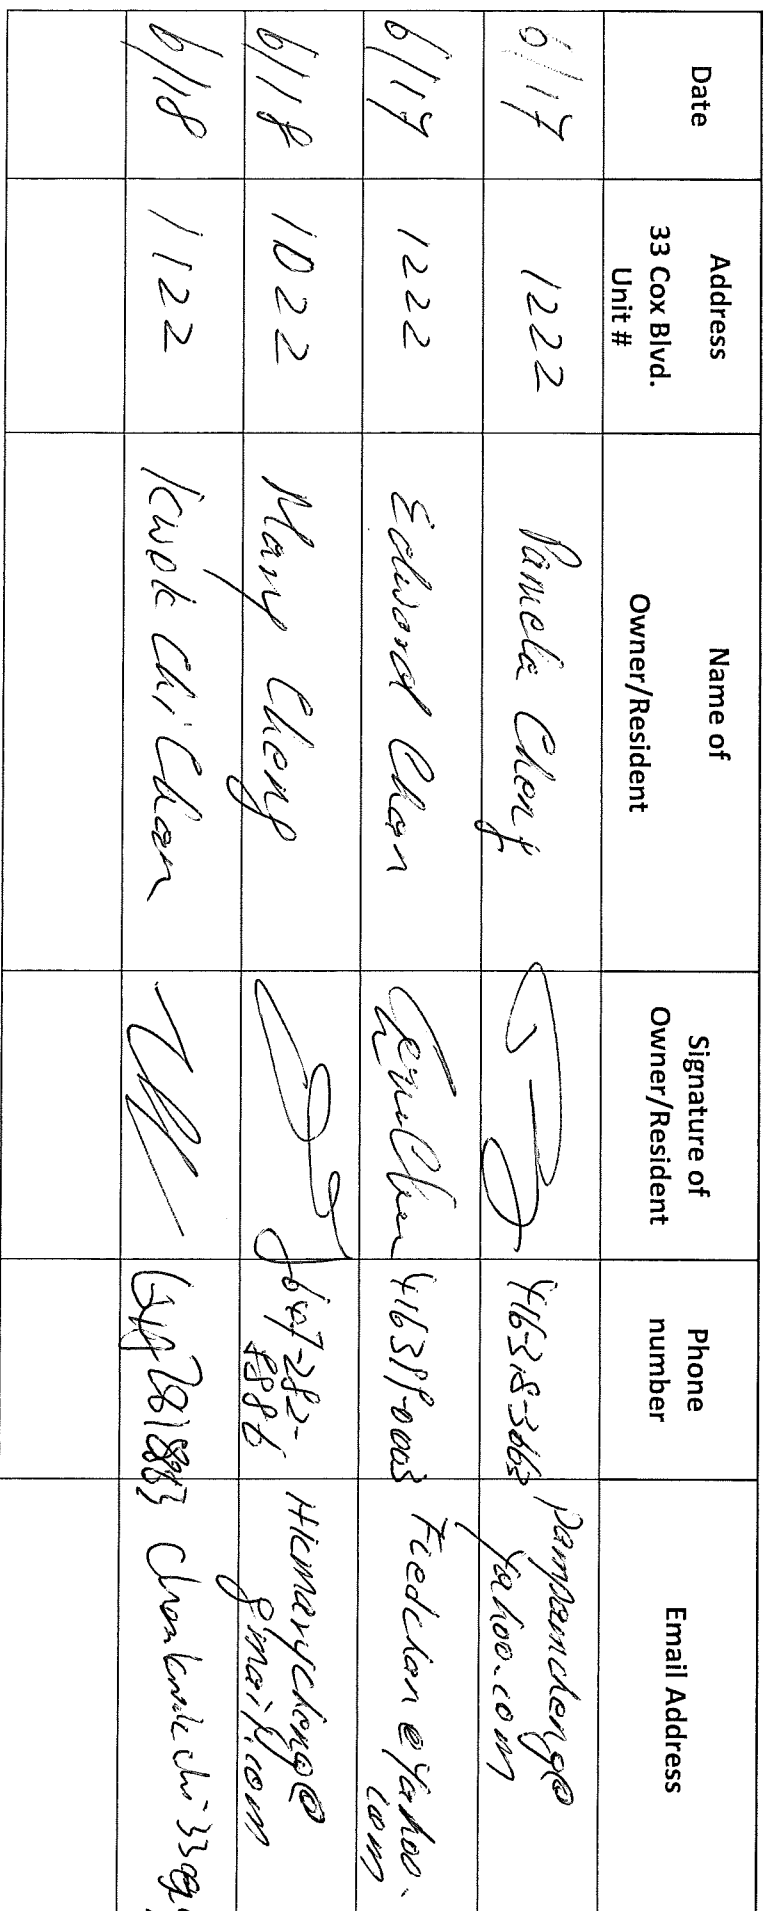 Date
Address
33 Cox Blvd.
Unit #
Name of
Owner/Resident
Signature of
Owner/Resident
Phone
number
Email Address
6/17
1222
Pamela Cheng
416-318-3663
Pampamcheng@
yahoo.com
6/17
1222
Edward Chan
Fiedchan@yahoo.
com
6/18
1022
Mary Cheng
647-282-
8886
Hicmarycheng@
gmail.com
6/18
1122
Kwok Chi Chan